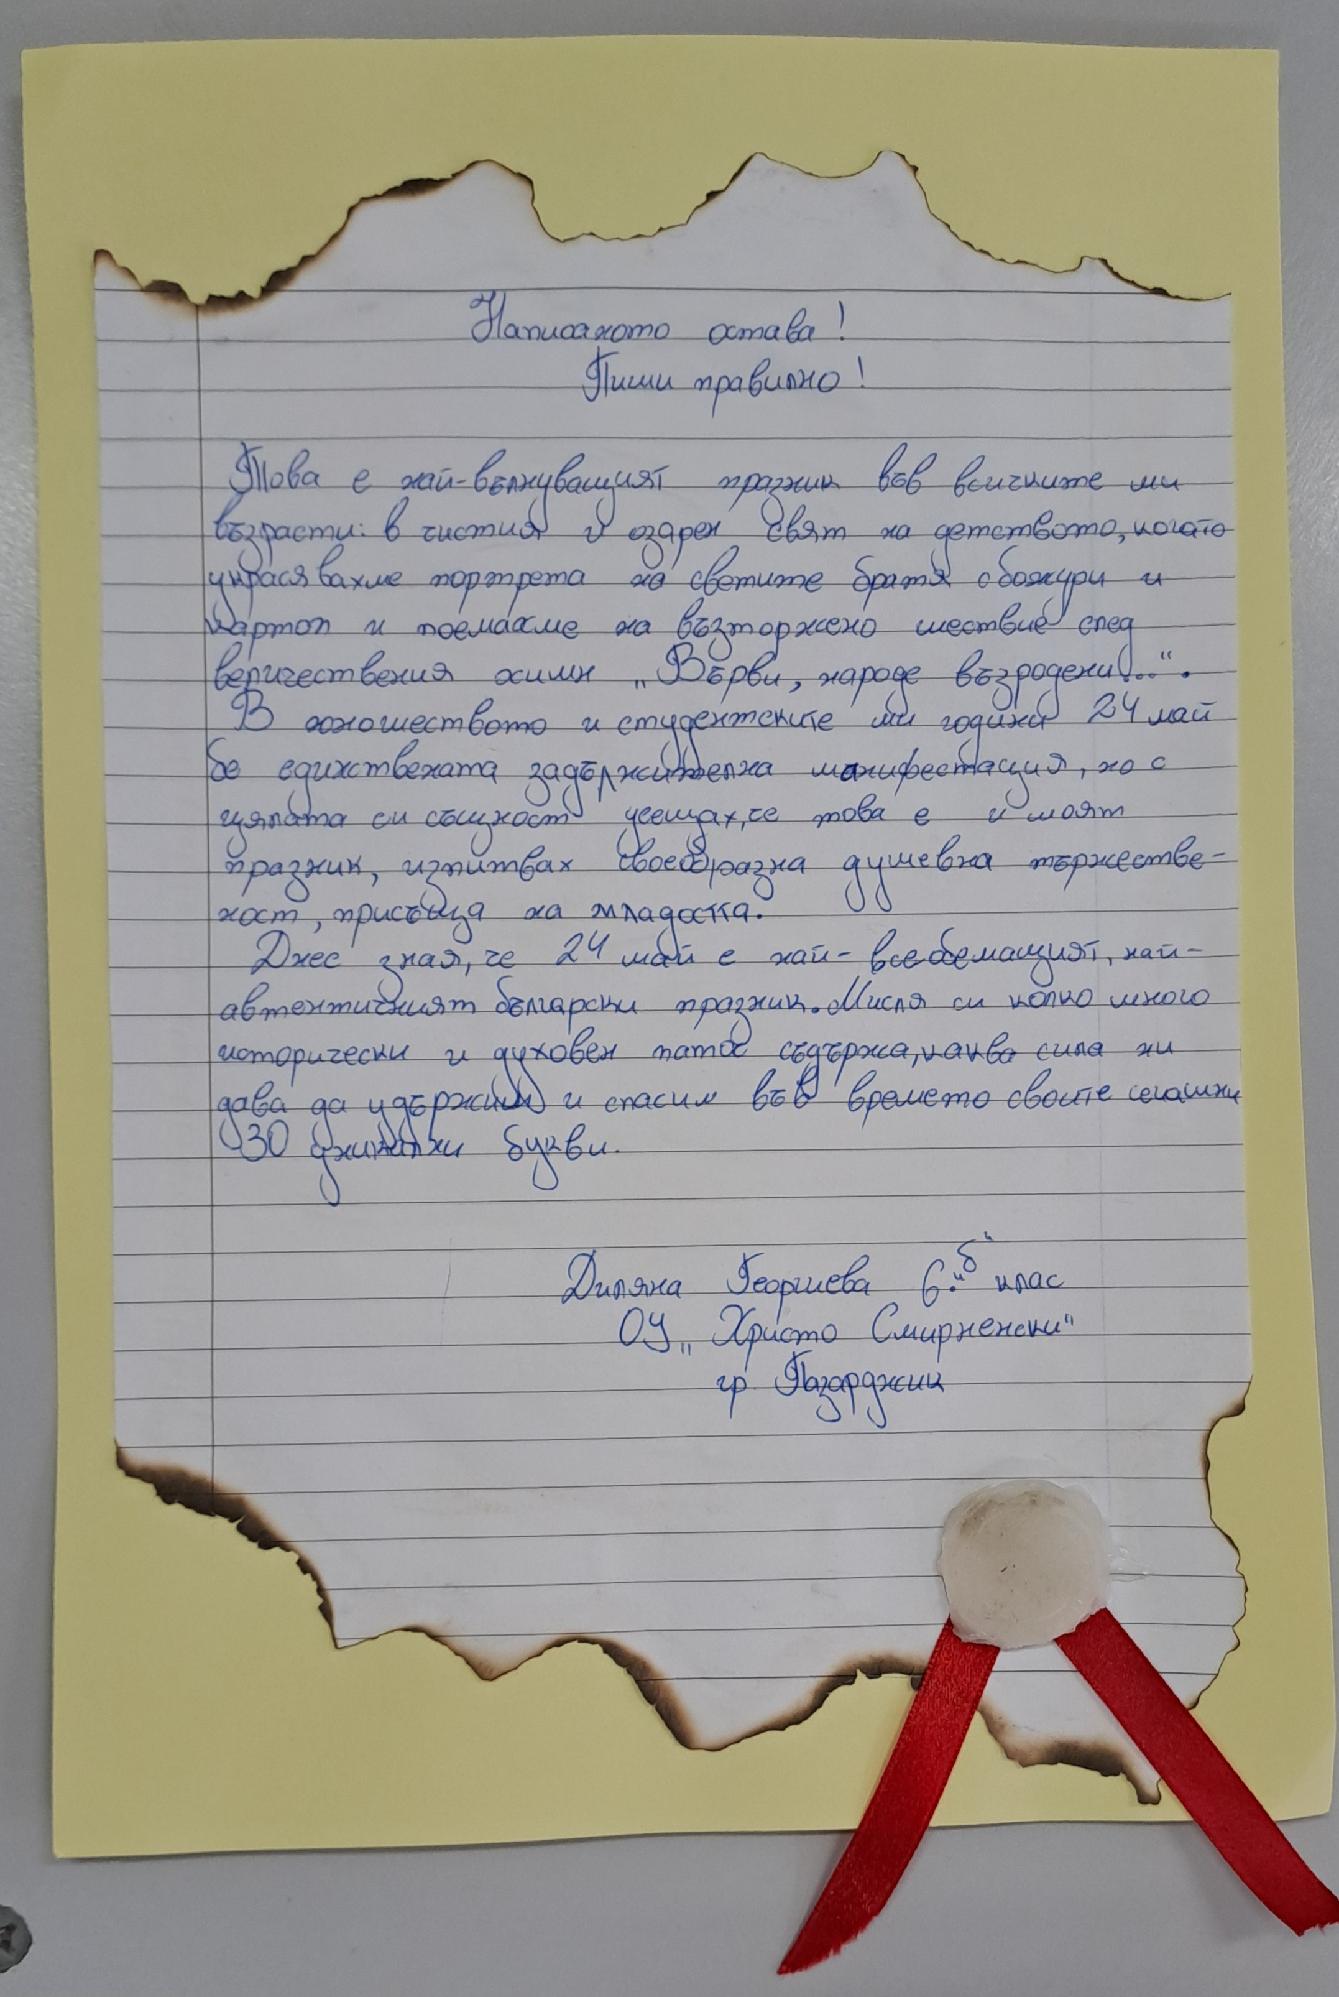 Написаното остава!
Пиши правилно!
Това е най-вълнуващият празник във всичките ми
възрасти: в чистия и озарен свят на детството, когато
украсявахме портрета на светите братя с божури и
картоп и поемахме на възторжено шествие след
величествения химн „Върви, народе възродени...“.
В юношеството и студентските ми години 24 май
бе единствената задължителна манифестация, но с
цялата си същност усещах, че това е и моят
празник, изпитвах своеобразна душевна тържестве-
ност, присъща на младостта.
Днес зная, че 24 май е най-всеобемащият, най-
автентичният български празник. Мисля си колко много
исторически и духовен патос съдържа, каква сила ни
дава да удържим и спасим във времето своите сегашни
30 букви.
Диляна Георгиева 6. „б“ клас
ОУ „Христо Смирненски“
гр Пазарджик